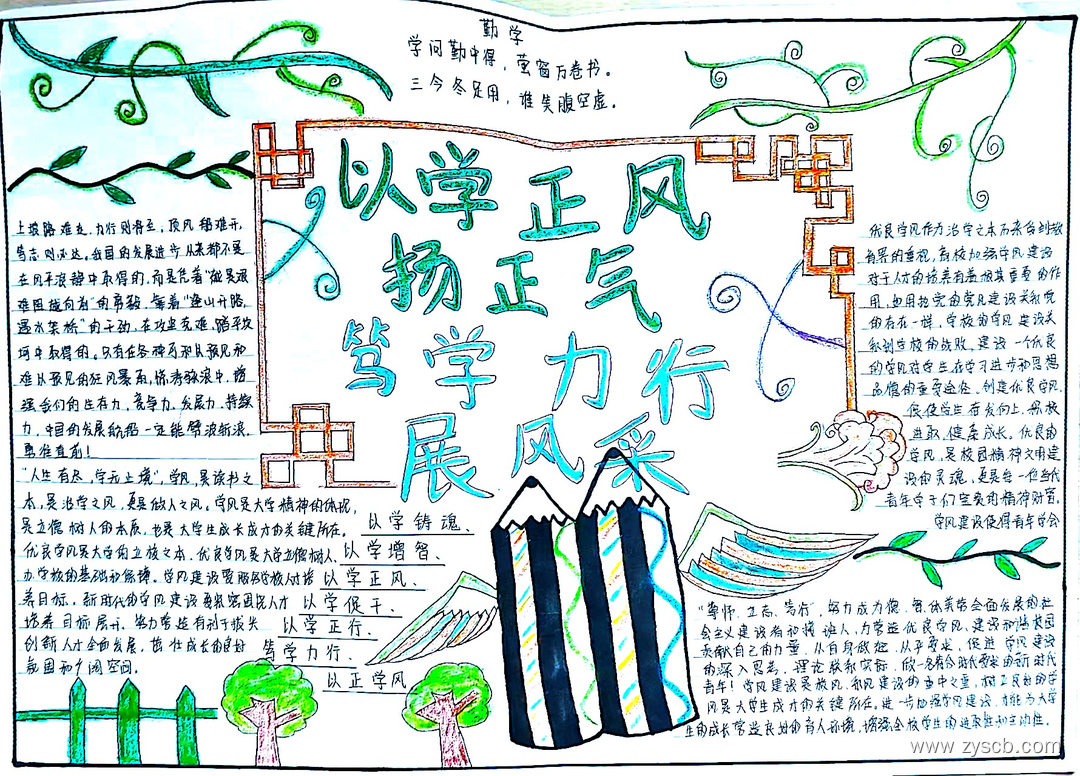 勤学
学问勤中得，萤窗万卷书。
三今冬足用，谁笑腹空虚。
以学正风
扬正气
笃学力行
展风采
上坡路难走，力行则将至，顶风船难开，
笃志则必达。我国的发展进步从来都不是
在风平浪静中取得的，而是凭着“越是艰
难困越向前”的勇毅，靠着“逢山开路，
遇水架桥”的干劲，在攻坚克难、踏平坎
坷中取得的。只有在各种可以预见和
难以预见的狂风暴雨，惊涛骇浪中，增
强我们的生存力、竞争力、发展力、持续
力，中国的发展航船一定能劈波斩浪，
勇往直前！
“人生有尽，学无止境”，学风是读书之
本，是治学之风，更是做人之风。学风是大学精神的体现，
是立德树人的本质，也是大学生成长成才的关键所在。
优良学风是大学的立校之本，优良学风是大学立德树人、
办学校的基础和保障。学风建设要服务学校人才培
养目标，新时代的学风建设要紧密围绕人才
培养目标展开，努力营造有利于拔尖
创新人才全面发展、茁壮成长的良好
氛围和广阔空间。
以学铸魂、
以学增智、
以学正风、
以学促干、
以学正行、
笃学力行、
以正学风
优良学风作为治学之本历来备到被
各界的重视，高校加强学风建设
对于人才的培养有着极其重要的作
用，也用执党的党风建设关乎党
的存在一样，学校的学风建设关
系到学校的成败。建设一个优良
的学风对学生在学习进步和思想
品德的重要途径。创建优良学风，
促使学生奋发向上、积极
进取、健康成长。优良的
学风，是校园精神文明建
设的灵魂，更是每一位当代
青年学子们宝贵的精神财富。
学风建设使得青年学会
“尊师、立志、笃行”，努力成为德、智、体、美劳全面发展的社
会主义建设者和接班人，为营造优良学风、建设和谐校园
贡献自己的力量，从自身做起，从严要求，促进学风建设
的深入思考，理论联和实际，做一名有合时代要求的新时代
青年！学风建设是校风、教风建设的重中之重，树立良好的学
风是大学生成才的关键所在。进一步加强学风建设，才能为大学
生的成长营造良好的育人环境，增强全校学生的進取性和主动性。
www.zyscb.com